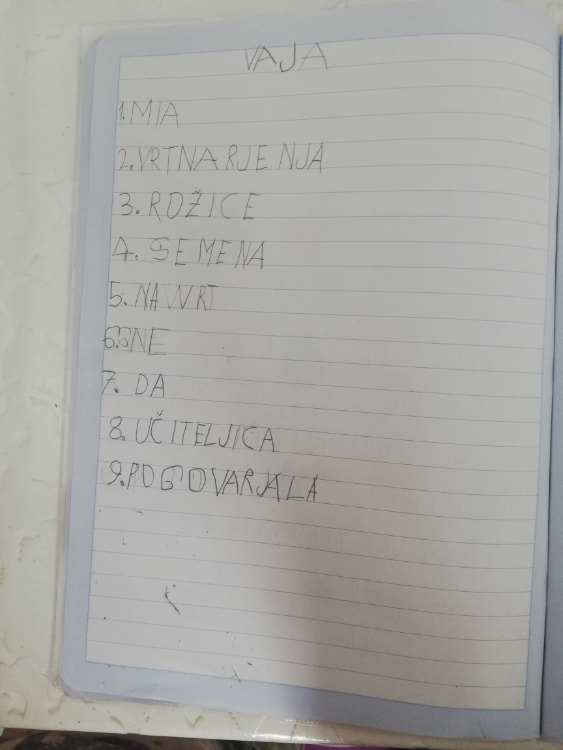 VAJA
1. MIA
2. VRTNARJENJA
3. ROŽICE
4. SEMENA
5. NA VVRT
6. NE
7. DA
8. UČITELJICA
9. POGOVARJALA